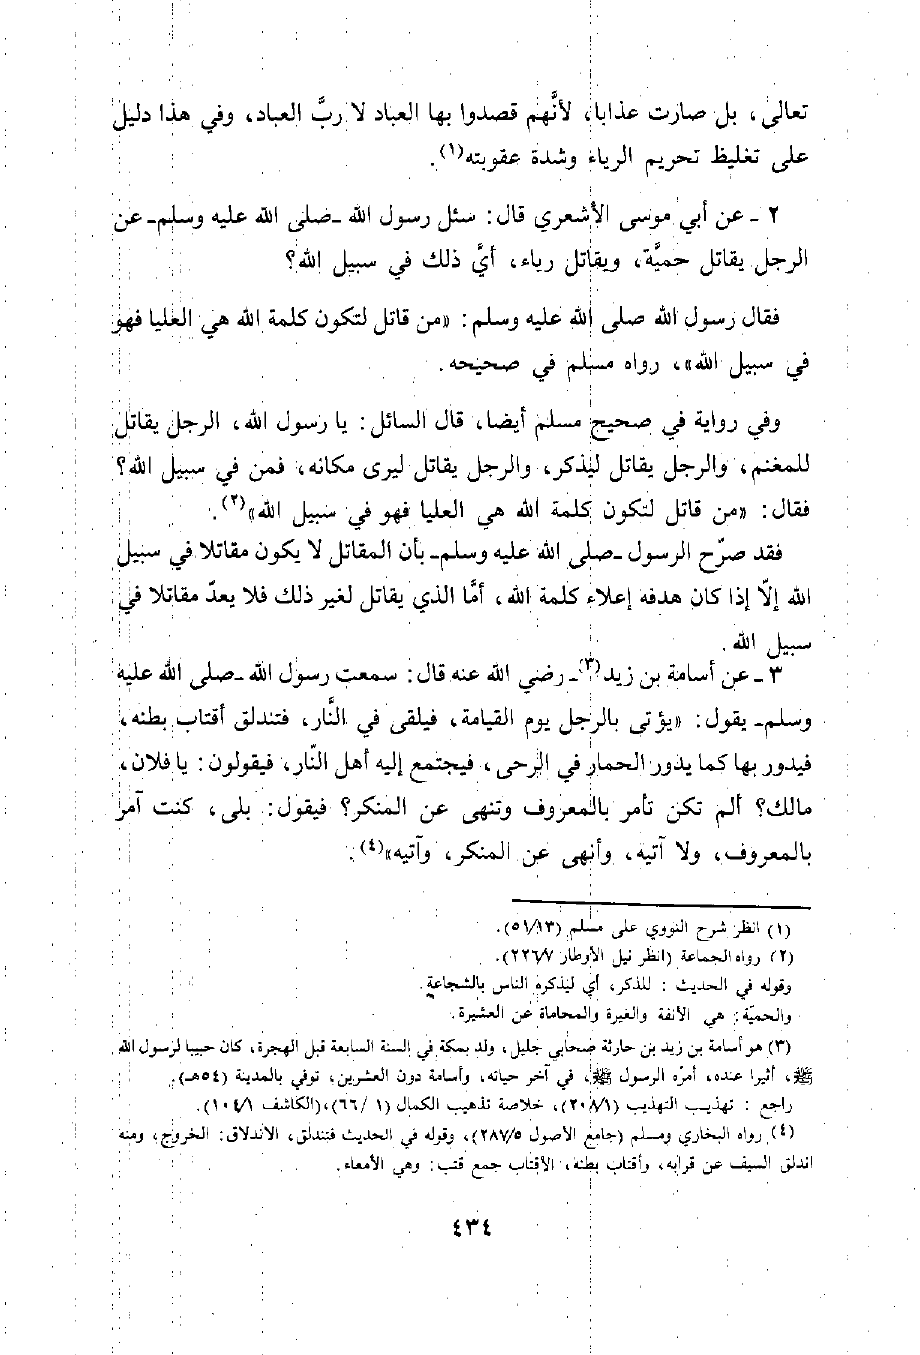 تعالى، بل صارت عذابا، لأنَّهم قصدوا بها العباد لا ربَّ العباد، وفي هذا دليل
على تغليظ تحريم الرياء وشدة عقوبته(١).
٢ ـ عن أبي موسى الأشعري قال: سئل رسول الله ـصلى الله عليه وسلم ـ عن
الرجل يقاتل حميَّة، ويقاتل رياء، أيَّ ذلك في سبيل الله؟
فقال رسول الله صلى الله عليه وسلم: «من قاتل لتكون كلمة الله هي العليا فهو
في سبيل الله»، رواه مسلم في صحيحه.
وفي رواية في صحيح مسلم أيضا، قال السائل: يا رسول الله، الرجل يقاتل
للمغنم، والرجل يقاتل ليذكر، والرجل يقاتل ليرى مكانه، فمن في سبيل الله؟
فقال: «من قاتل لتكون كلمة الله هي العليا فهو في سبيل الله»(٢).
فقد صرّح الرسول ـصلى الله عليه وسلم ـ بأن المقاتل لا يكون مقاتلا في سبيل
الله إلّا إذا كان هدفه إعلاء كلمة الله، أمَّا الذي يقاتل لغير ذلك فلا يعدّ مقاتلا في
سبيل الله.
٣ ـ عن أسامة بن زيد(٣)ـ رضي الله عنه قال: سمعت رسول الله ـصلى الله عليه
وسلم ـ يقول: «يؤتى بالرجل يوم القيامة، فيلقى في النَّار، فتندلق أقتاب بطنه،
فيدور بها كما يدور الحمار في الرحى، فيجتمع إليه أهل النّار، فيقولون: يا فلان،
مالك؟ ألم تكن تأمر بالمعروف وتنهى عن المنكر؟ فيقول: بلى، كنت آمر
بالمعروف، ولا آتيه، وأنهى عن المنكر، وآتيه»(٤).
(١) انظر شرح النووي على مسلم (٥١/١٣).
(٢) رواه الجماعة (انظر نيل الأوطار ٢٢٦/٧).
وقوله في الحديث: للذكر، أي ليذكره الناس بالشجاعة.
والحميّة: هي الأنفة والغيرة والمحاماة عن العشيرة.
(٣) هو أسامة بن زيد بن حارثة صحابي جليل، ولد بمكة في السنة السابعة قبل الهجرة، كان حبيبا لرسول الله
ﷺ، أثيرا عنده، أمّره الرسول ﷺ، في آخر حياته، وأسامة دون العشرين، توفي بالمدينة (٥٤هـ).
راجع: تهذيب التهذيب (٢٠٨/١)، خلاصة تذهيب الكمال (١ /٦٦)، (الكاشف ١٠٤/١).
(٤) رواه البخاري ومسلم (جامع الأصول ٢٨٧/٥)، وقوله في الحديث فتندلق، الاندلاق: الخروج، ومنه
اندلق السيف عن قرابه، وأقتاب بطنه، الأقتاب جمع قتب: وهي الأمعاء.
٤٣٤